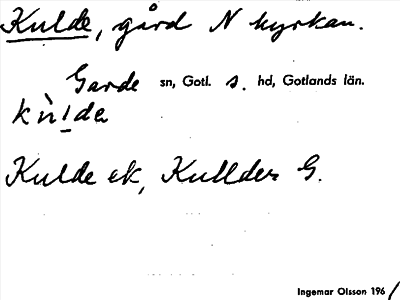 Kulde, gård N kyrkan.
Garde sn, Gotl. s. hd, Gotlands län.
kùlde
Kulde ek, Kullder G.
Ingemar Olsson 196/